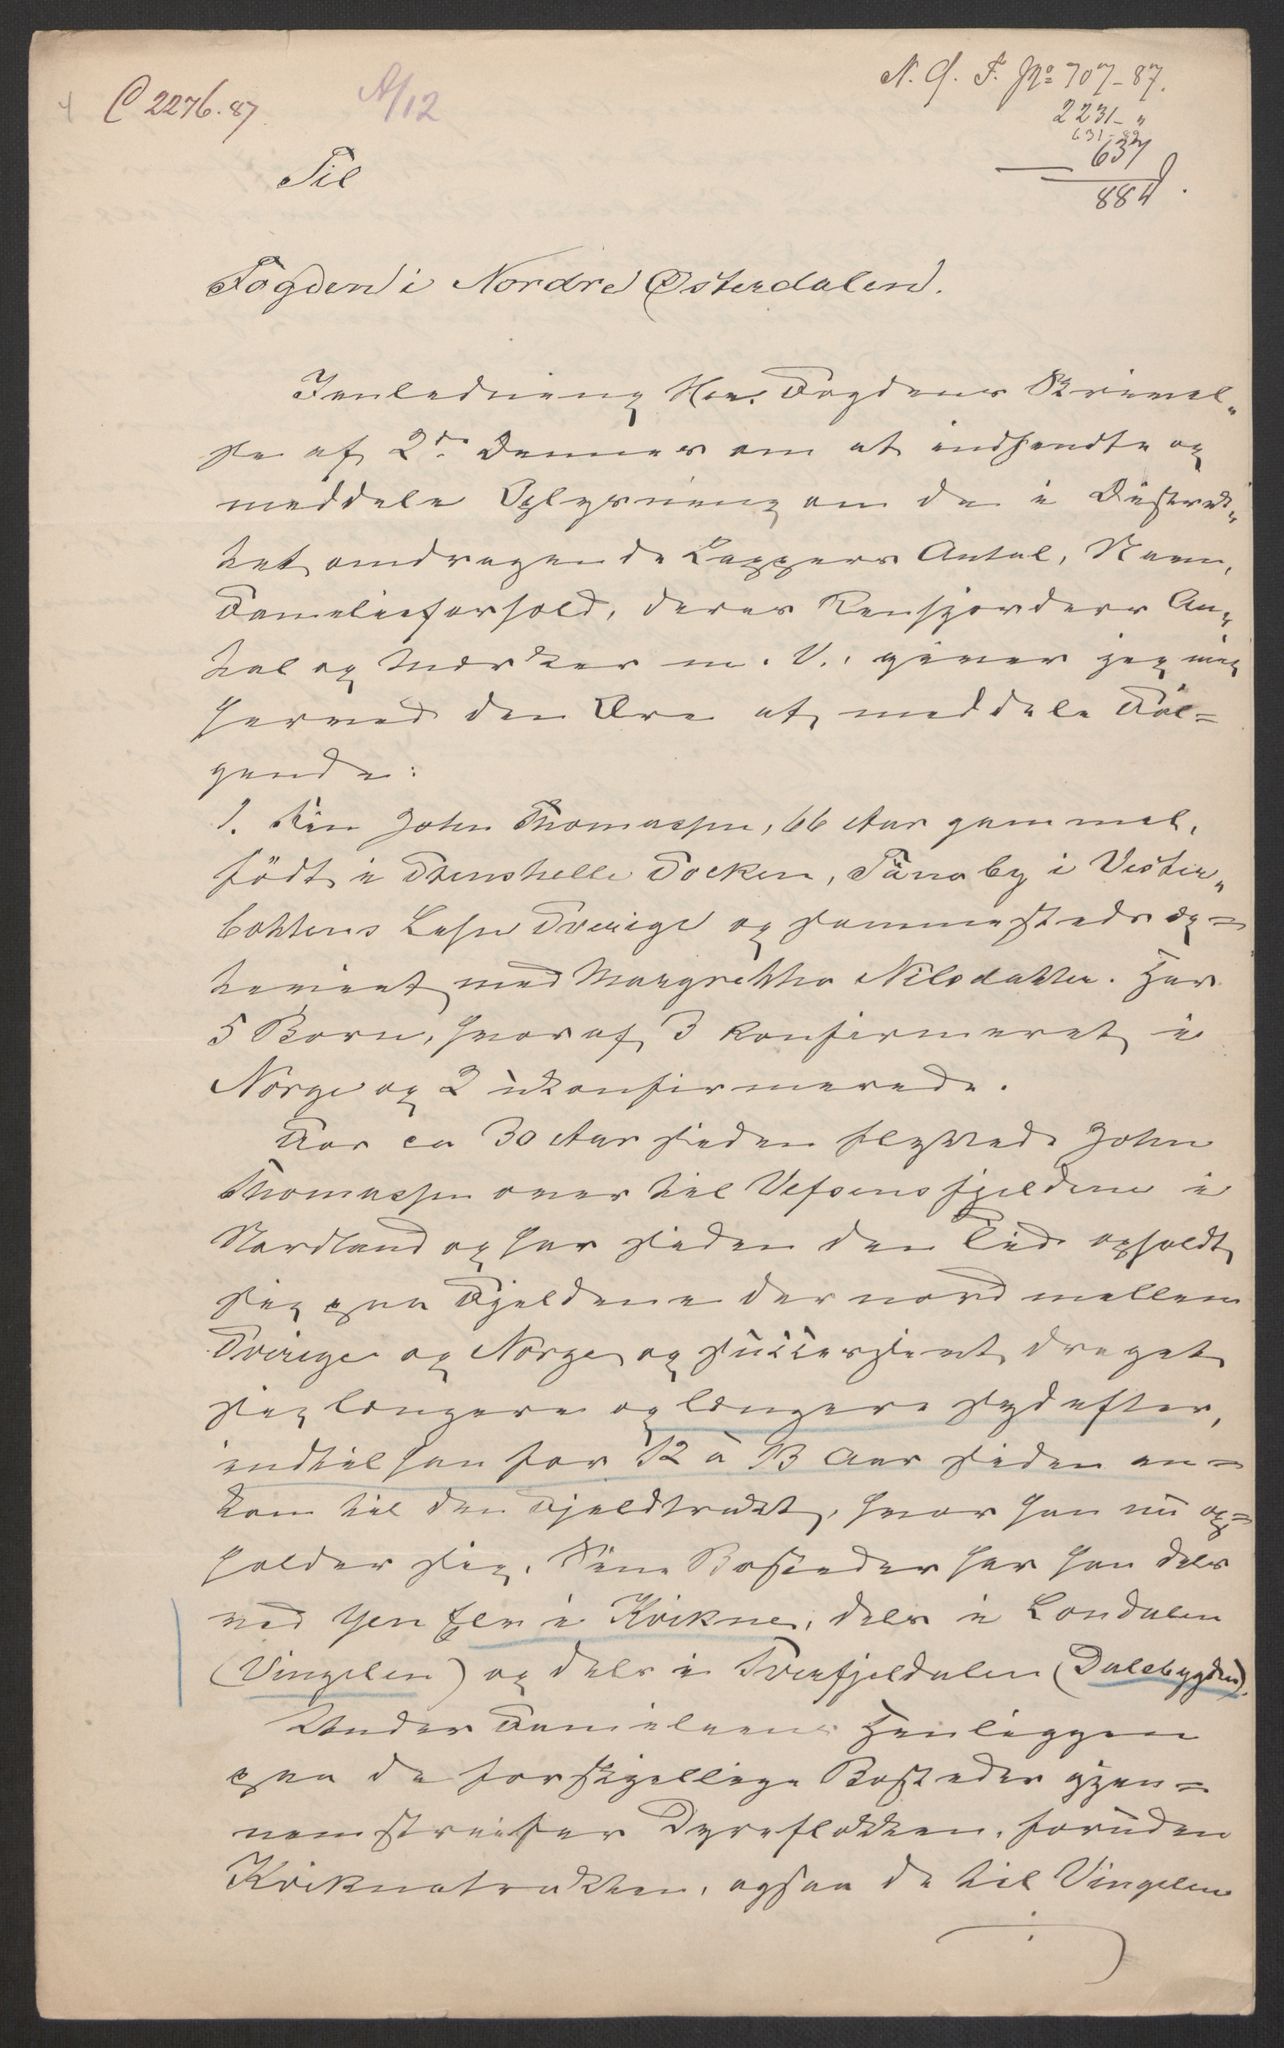 4
C 2276.87
A/12
N. Ø. F. No 707-87.
2231 - "
631-89
637
884
Til
Fogden i Nordre Østerdalen.
I Anledning Hr. Fogdens Skrivel„
se af 2den Dennes om at indhendte og
meddele Oplysning om de i Distrik„
tet omdragende Lappers Antal, Navn,
Familieforhold, deres Rensjorders An„
tal og Mærker m. V. giver jeg mig
herved den Ære at meddele Føl=
gende:
1. Fin John Thomassen, 66 Aar gammel,
født i Stenshelle Socken, Tänaby i Vester„
bottens Lehn Sverige og sammesteds op=
kaviet med Margrettha Nilsdatter. Har
5 Børn, hvoraf 3 konfirmeret i
Norge og 2 ukonfirmerede.
For ca 30 Aar siden flyttede John
Thomassen over til Vefsensfjeldene i
Nordland og har siden den Tid opholdt
sig paa Fjeldene der nord mellem
Sverige og Norge og successivt draget
sig længere og længere sydefter,
indtil han for 12 à 13 Aar siden an=
kom til den Fjeldtrakt, hvor han nu op=
holder sig. Sine Bosteder har han dels
ved Yen Elv i Kvikne, dels i Londalen
(Vingelen) og dels i Tverfjeldalen (Dalsbygden).
Under Familiens Henliggen
paa de forskjellige Bosteder gjen=
nemstreifer Dyreflokken, foruden
Kviknetrakten, ogsaa de til Vingelen